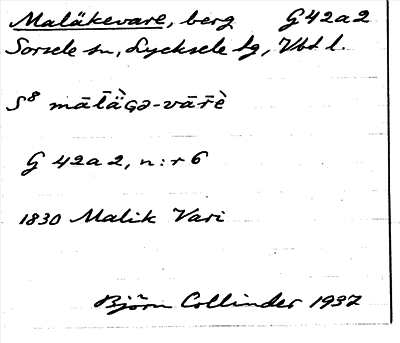 Maläkevare, berg G42a2
Sorsele sn, Lycksele lg, Vbt l.
S⁸ mālä̀Gə-vārè
G 42a2, n:r 6
1830 Malik Vari
Björn Collinder 1937